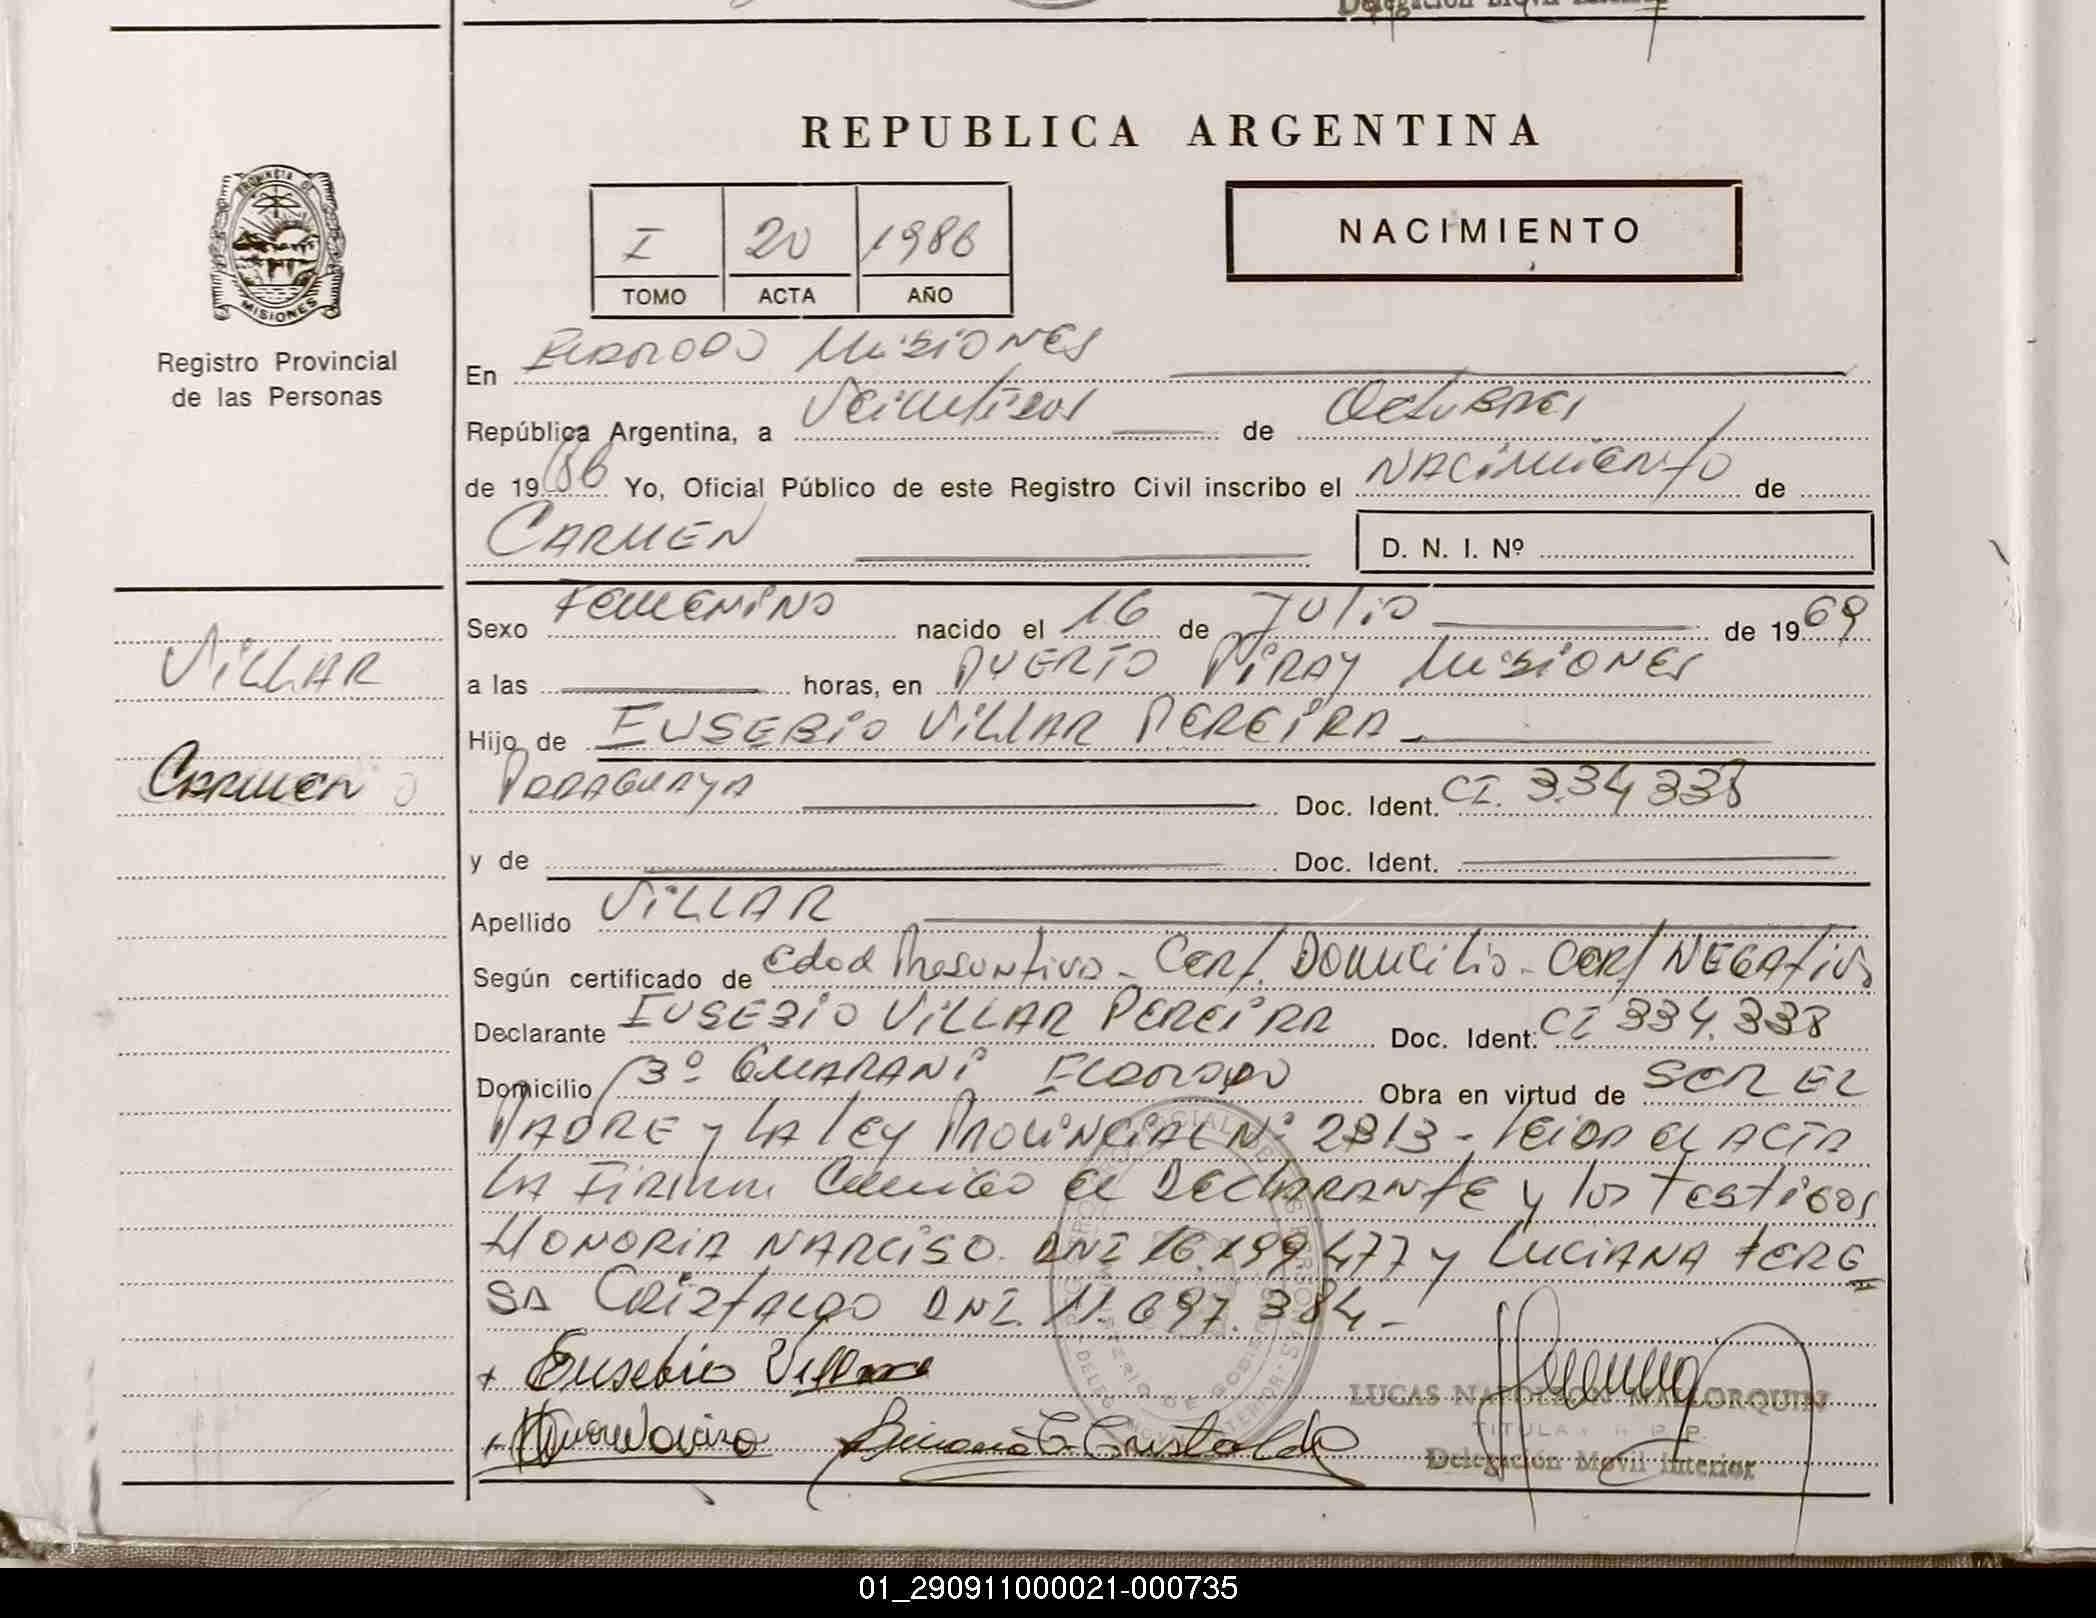 REPUBLICA ARGENTINA
PROVINCIA DE
MISIONES
Registro Provincial
de las Personas
I 20 1986
TOMO ACTA AÑO
NACIMIENTO
En Eldorado Misiones
República Argentina, a Veintidos de Octubre
de 1986 Yo, Oficial Público de este Registro Civil inscribo el NACIMIENTO de
CARMEN D. N. I. Nº
VILLAR
CARMEN
Sexo FEMENINO nacido el 16 de JULIO de 1969
a las horas, en PUERTO PIRAY MISIONES
Hijo de EUSEBIO VILLAR PEREIRA
PARAGUAYA Doc. Ident. CI. 334338
y de Doc. Ident.
Apellido VILLAR
Según certificado de Edad Presuntiva - Cert. Domicilio - Cert/ NEGATIVO
Declarante EUSEBIO VILLAR PEREIRA Doc. Ident: CI 334.338
Domicilio Bº GUARANI ELDORADO Obra en virtud de SER EL
PADRE y LA LEY PROVINCIAL Nº 2313 - leida el ACTA
LA FIRMAN Conmigo el DECLARANTE y los Testigos
HONORIA NARCISO DNI 16.199.477 y LUCIANA TERE
SA CRISTALDO DNI. 11.697.384 -
+ Eusebio Villar
Luciana T. Cristaldo
LUCAS NAPOLEON MALLORQUIN
TITULAR R. P. P.
Delegación Movil Interior
01_290911000021-000735